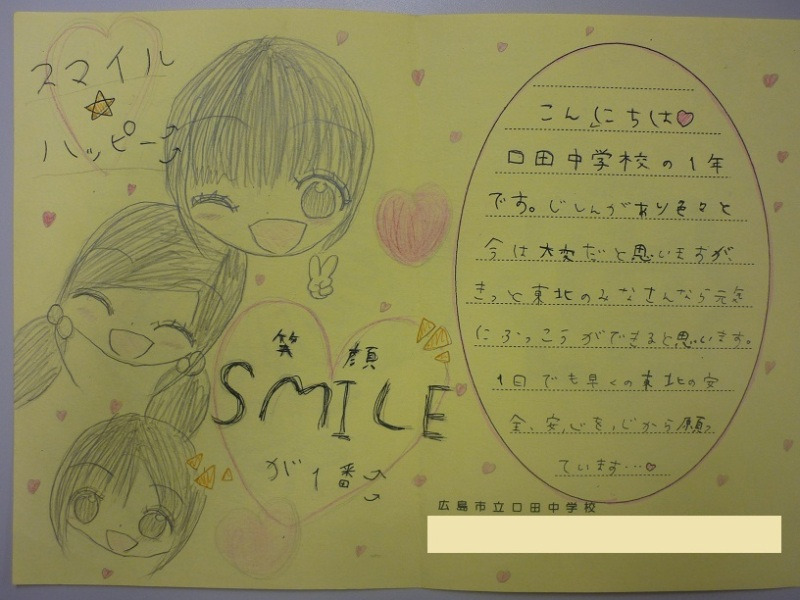 スマイル
ハッピー
笑顔
SMILE
が1番
こんにちは
口田中学校の1年
です。じしんがあり色々と
今は大変だと思いますが、
きっと東北のみなさんなら元気
にふっこうができると思います。
1日でも早くの東北の安
全、安心を、心から願っ
ています…
広島市立口田中学校